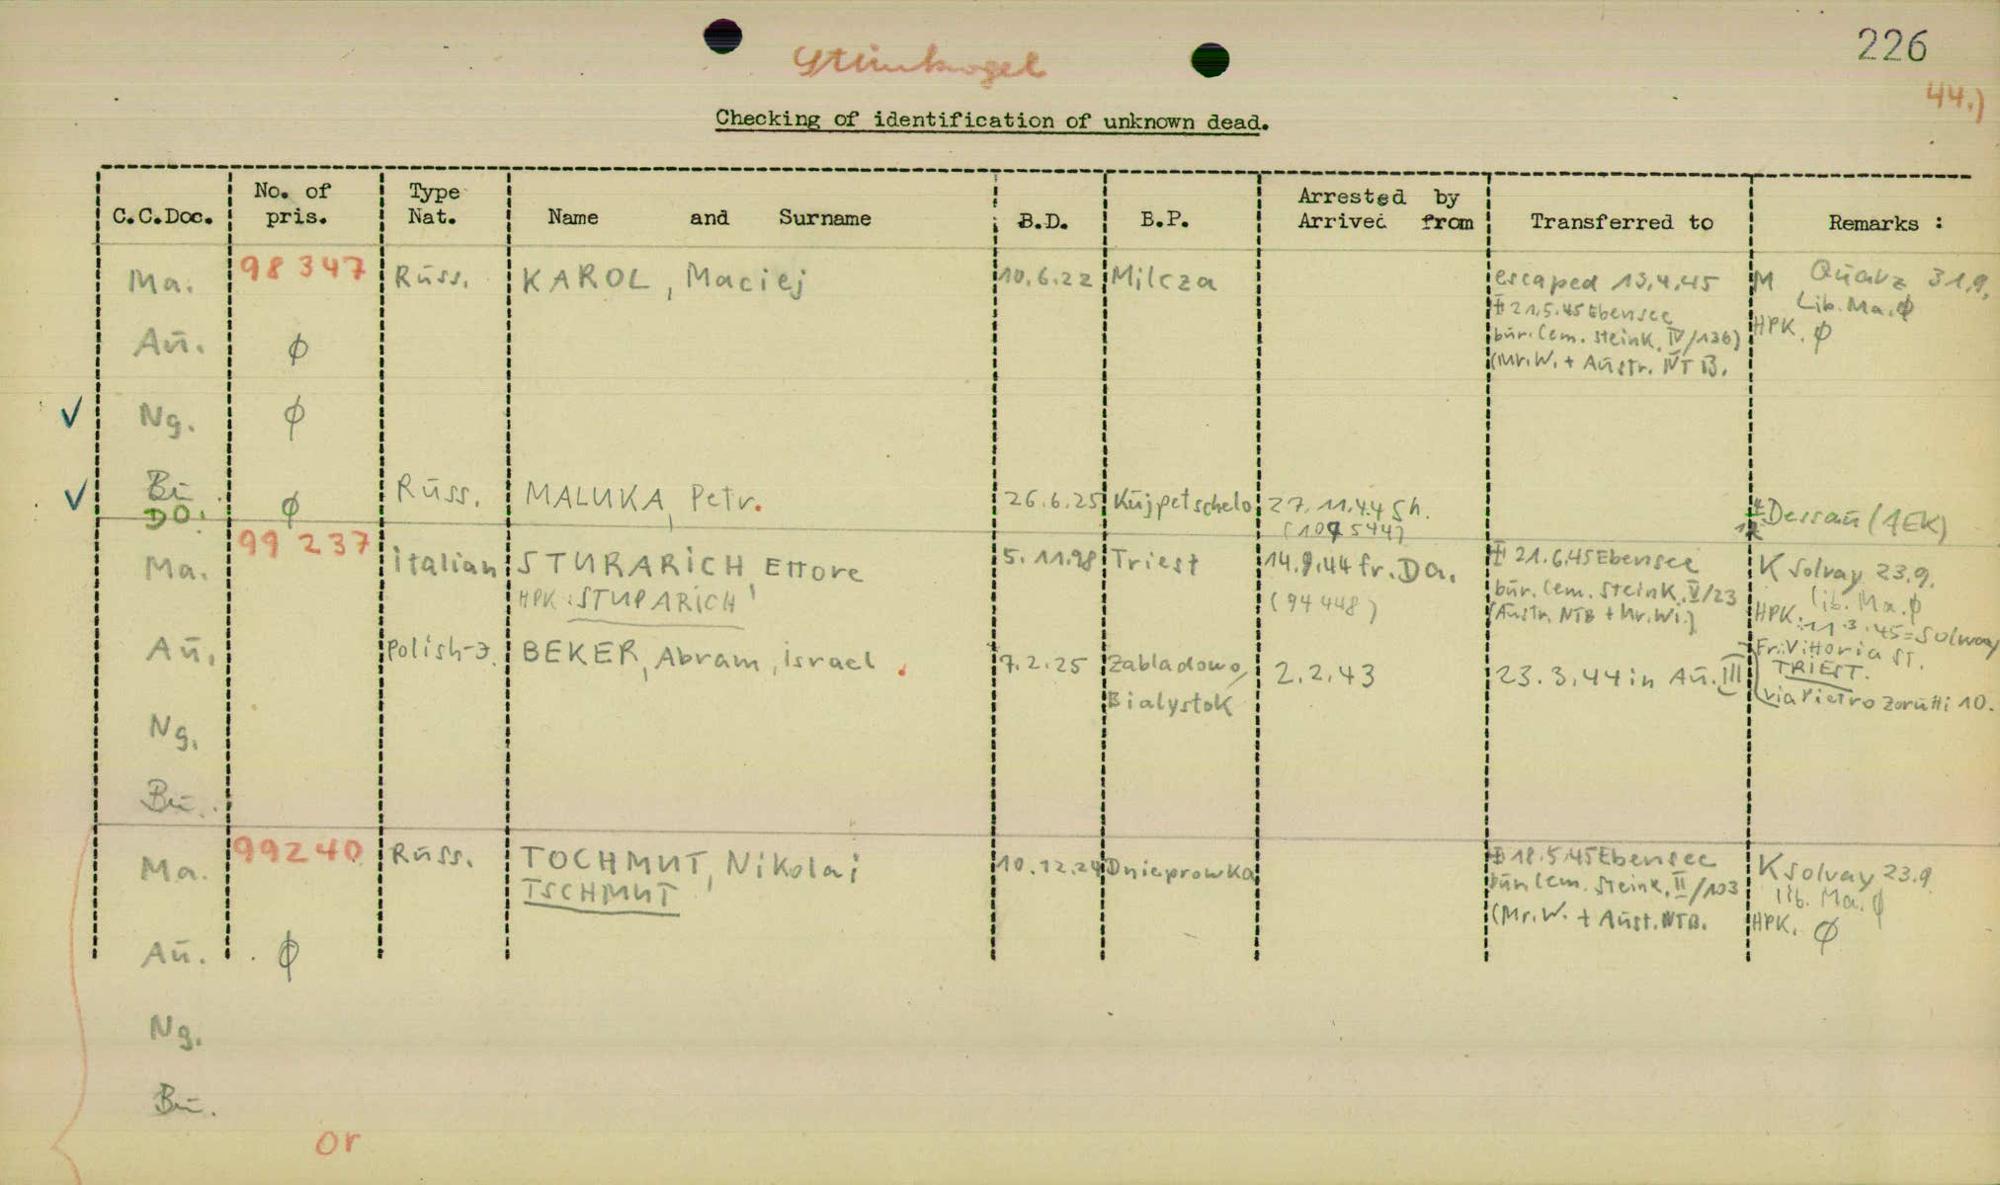 226
Steinkogel
44.)
Checking of identification of unknown dead.
C.C.Doc. No. of pris. Type Nat. Name and Surname B.D. B.P. Arrested by Arrived from Transferred to Remarks :
Ma. 98 347 Rūss. KAROL, Maciej 10.6.22 Milcza escaped 13.4.45 M Quarz 31.9.
21.5.45 Ebensee Lib. Ma. φ
būr. Cem. Steink. IV/136) HPK. φ
Aū. φ (Mr.W. + Aūstr. NTB.
Ng. φ
Bū. φ Rūss. MALUKA, Petr. 26.6.25 Kūjpetschelo 27.11.44 Sh.
DO. Dessaū (AEK)
Ma. 99 237 italian STURARICH, Ettore 5.11.98 Triest 14.9.44 fr. Da. 21.6.45 Ebensee K Solvay 23.9.
HPK: STUPARICH (94 448) būr. Cem. Steink. V/23 lib. Ma. φ
(Aūstr. NTB + Mr.Wi.) HPK: 11.3.45=Solway
Aū. Polish-J. BEKER, Abram, israel. 7.2.25 Zabladowo, 2.2.43 23.3.44 in Aū. III Fr: Vittoria ST.
TRIEST.
Bialystok via Pietro Zorūtti 10.
Ng.
Bū.
Ma. 99240 Rūss. TOCHMUT, Nikolai 10.12.24 Dnieprowka 18.5.45 Ebensee K Solvay 23.9
TSCHMUT būr. Cem. Steink. II/103 lib. Ma. φ
(Mr.W. + Aūst. NTB. HPK. φ
Aū. φ
Ng.
Bū.
or